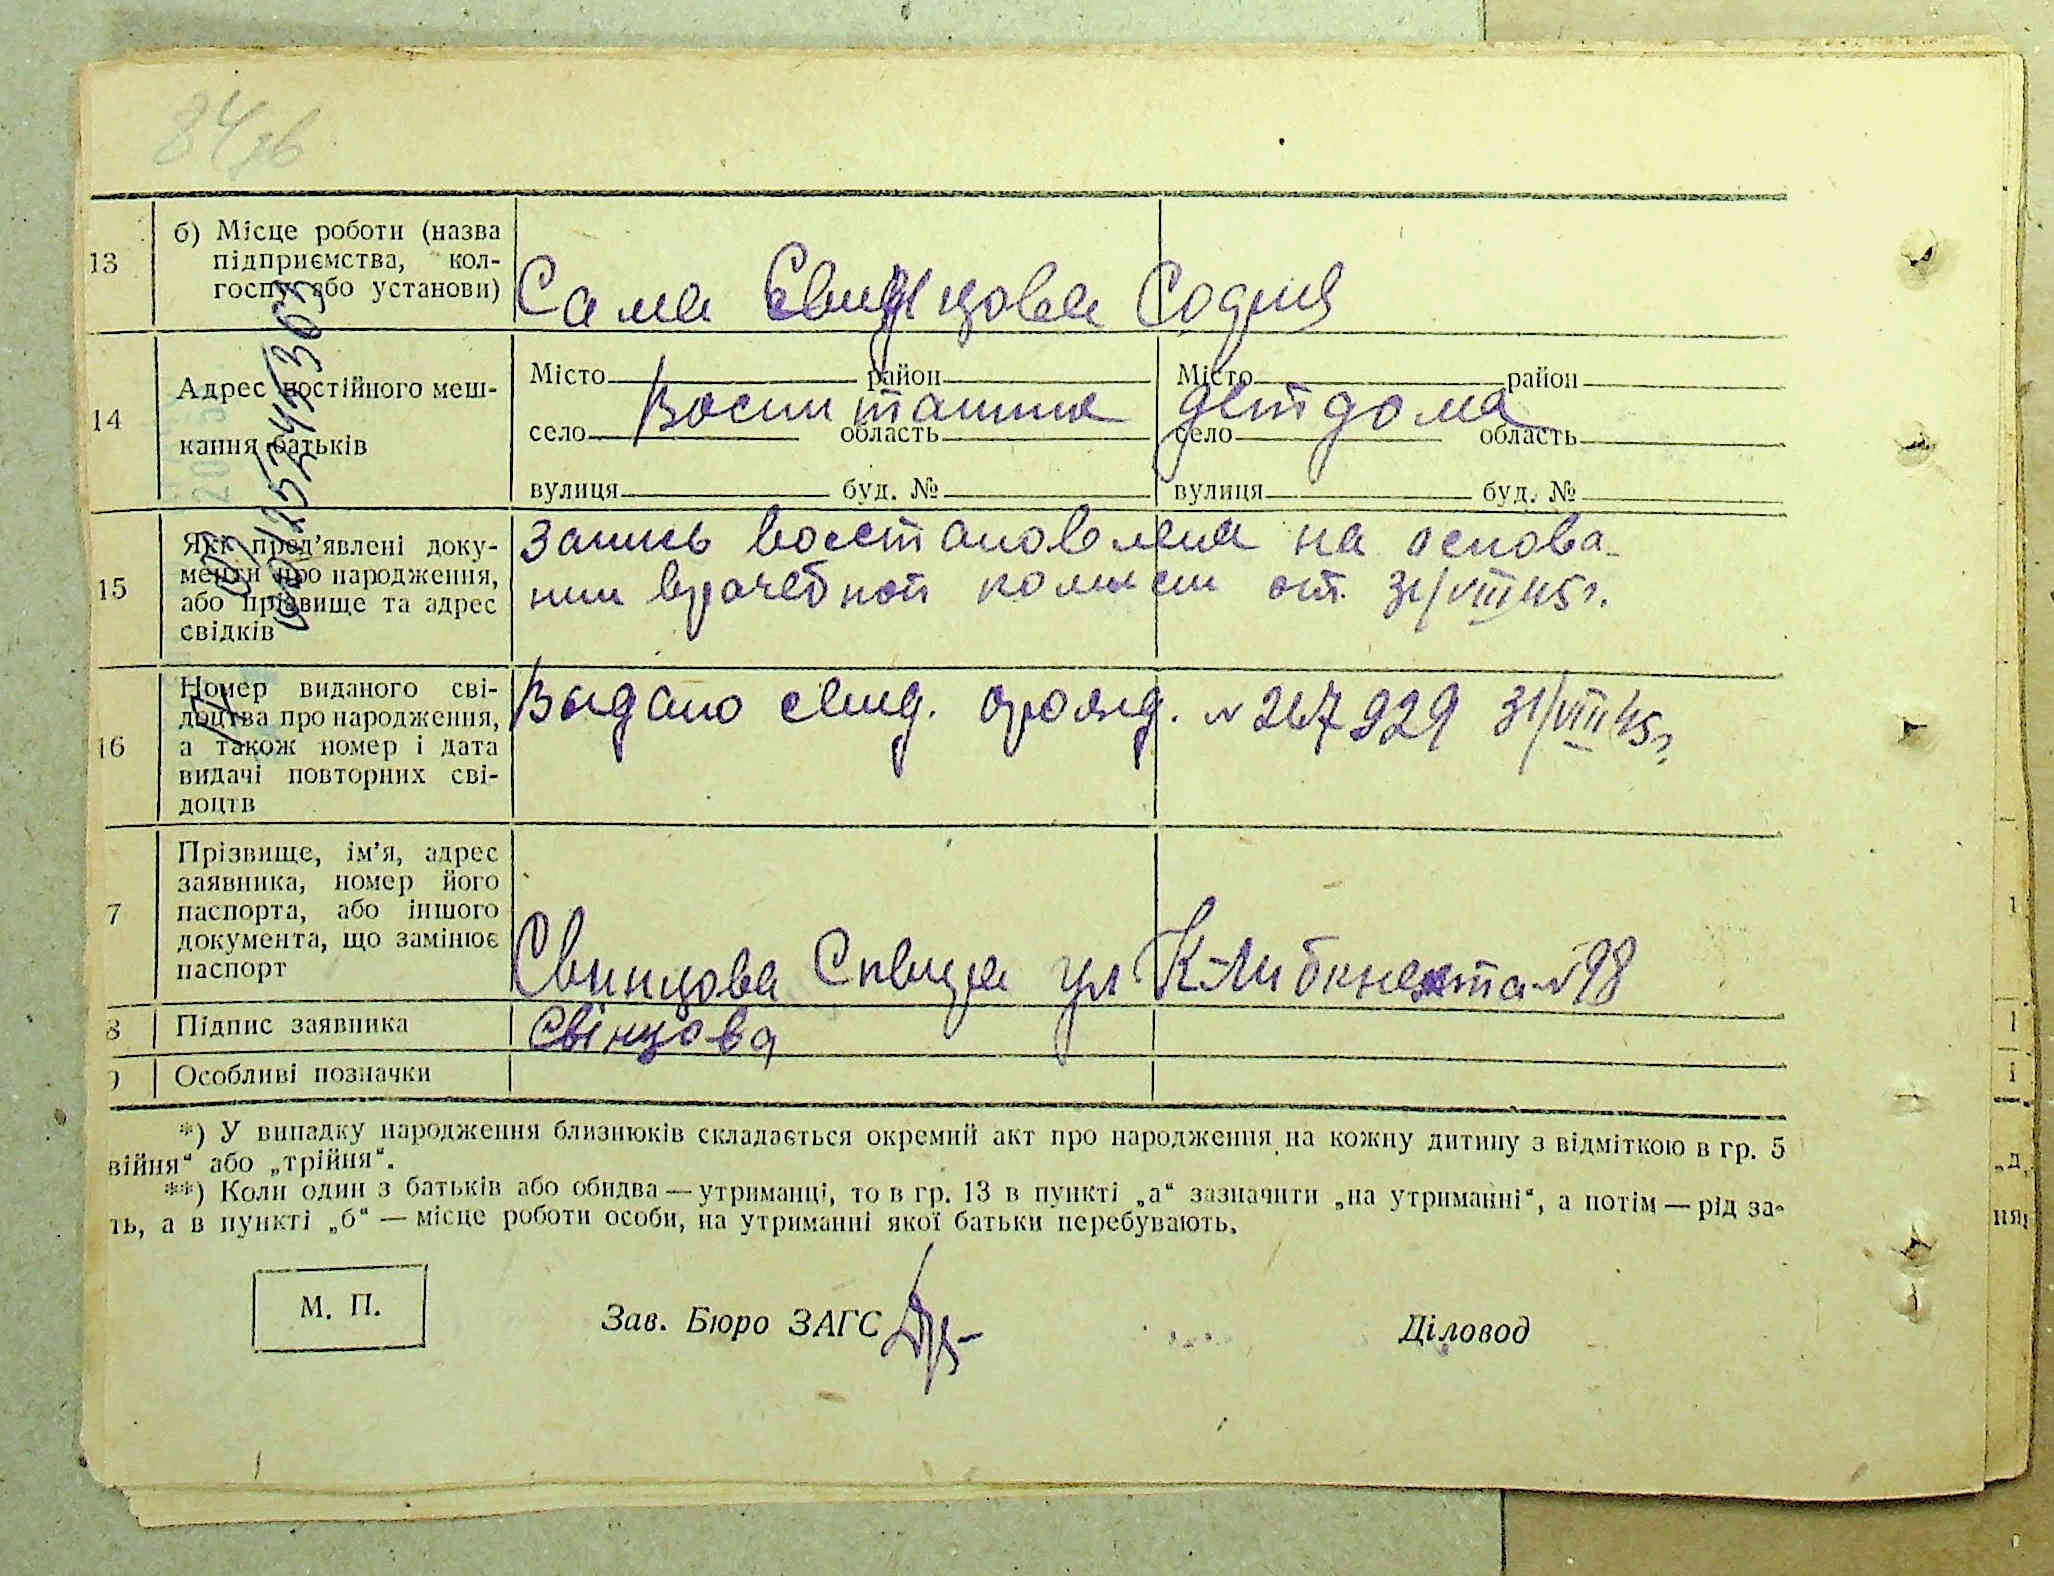 84 зв
13 б) Місце роботи (назва
підприємства, кол-
госпу або установи)
Сама Свинцова София
14 Адрес постійного меш-
кання батьків
Місто район Місто район
Воспитанник детдома
село область село область
вулиця буд. № вулиця буд. №
15 Які пред’явлені доку-
менти про народження,
або прізвище та адрес
свідків
Запись восстановлена на основа-
нии врачебной комисси от 31/VIII 45 г.
16 Номер виданого сві-
доцтва про народження,
а також номер і дата
видачі повторних сві-
доцтв
Выдано свид. о рожд. № 267929 31/VIII 45 г.
7 Прізвище, ім’я, адрес
заявника, номер його
паспорта, або іншого
документа, що замінює
паспорт
Свинцова ул К-Либкнехта № 98
8 Підпис заявника Свінцова
9 Особливі позначки
*) У випадку народження близнюків складається окремий акт про народження на кожну дитину з відміткою в гр. 5
війня“ або „трійня“.
**) Коли один з батьків або обидва — утриманці, то в гр. 13 в пункті „а“ зазначити „на утриманні“, а потім — рід за-
ть, а в пункті „б“ — місце роботи особи, на утриманні якої батьки перебувають.
М. П. Зав. Бюро ЗАГС Діловод